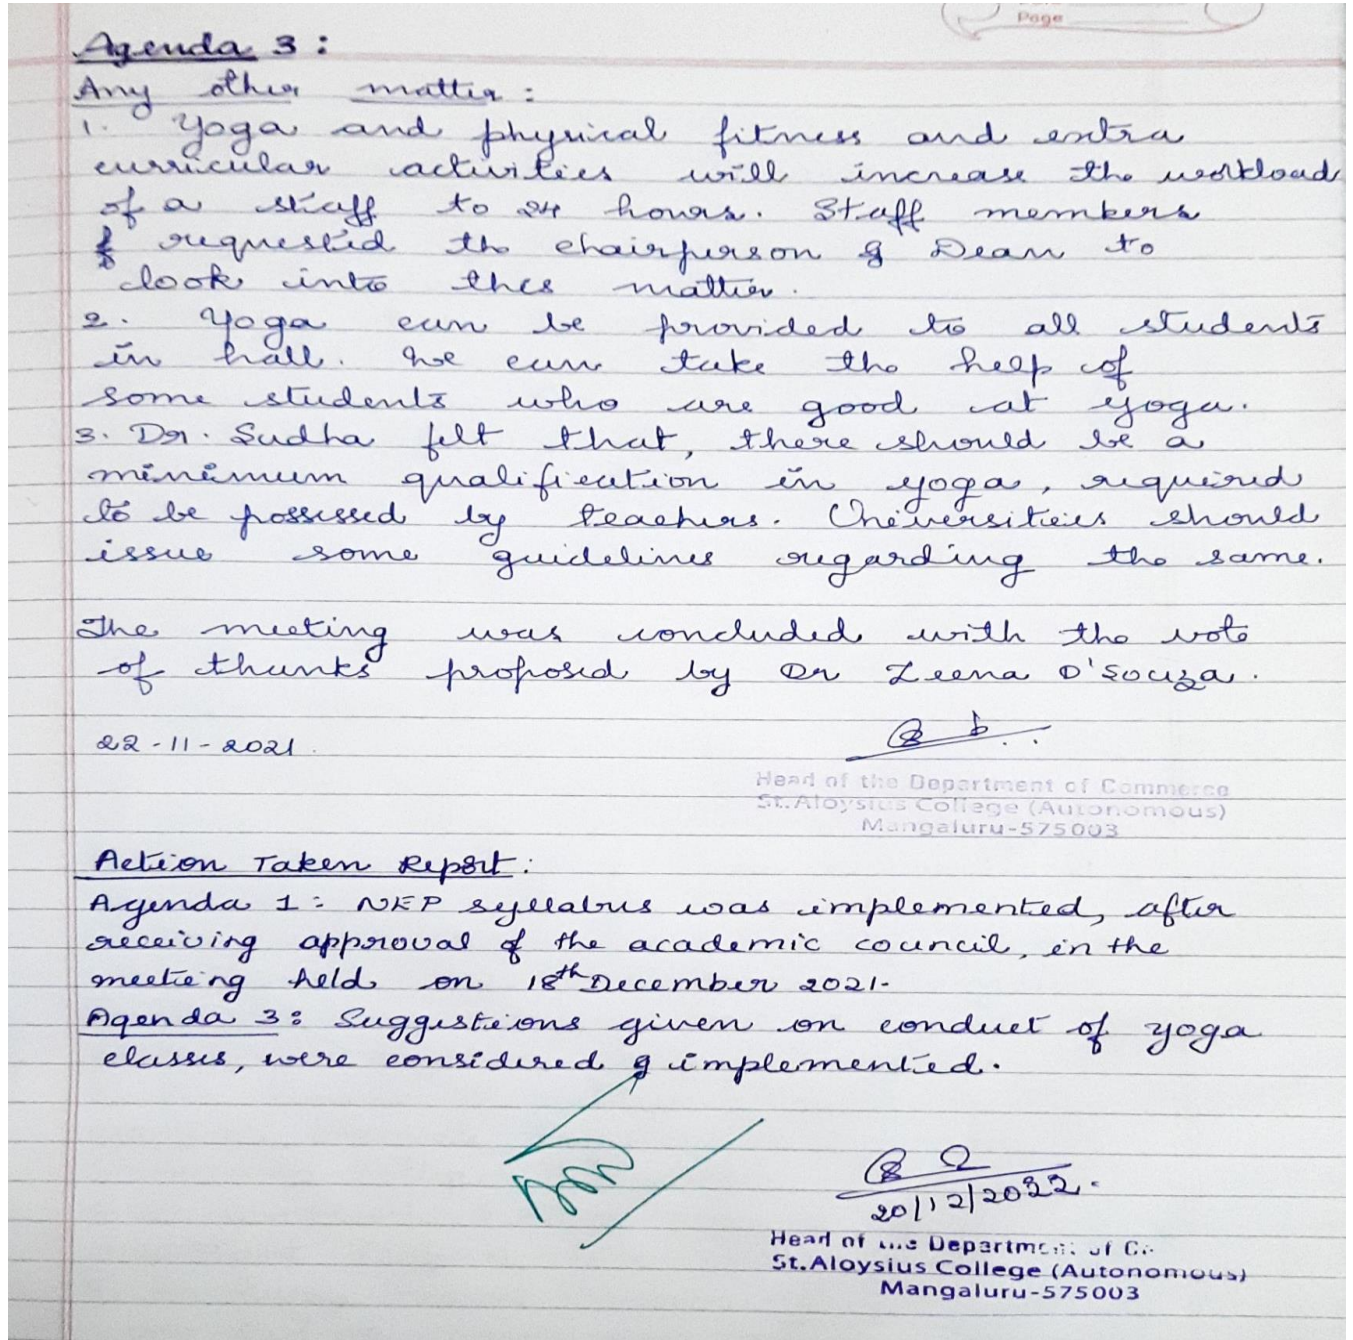 Page
Agenda 3 :
Any other matter :
1. Yoga and physical fitness and extra
curricular activities will increase the workload
of a staff to 24 hours. Staff members
requested the chairperson & Dean to
look into this matter.
2. Yoga can be provided to all students
in hall. We can take the help of
some students who are good at yoga.
3. Dr. Sudha felt that, there should be a
minimum qualification in yoga, required
to be possessed by teachers. Universities should
issue some guidelines regarding the same.
The meeting was concluded with the vote
of thanks proposed by Dr Zeena D'Souza.
22-11-2021.
Head of the Department of Commerce
St.Aloysius College (Autonomous)
Mangaluru-575003
Action Taken Report :
Agenda 1 : NEP syllabus was implemented, after
receiving approval of the academic council, in the
meeting held on 18th December 2021.
Agenda 3 : Suggestions given on conduct of yoga
classes, were considered & implemented.
20/12/2022.
Head of the Department of
St.Aloysius College (Autonomous)
Mangaluru-575003